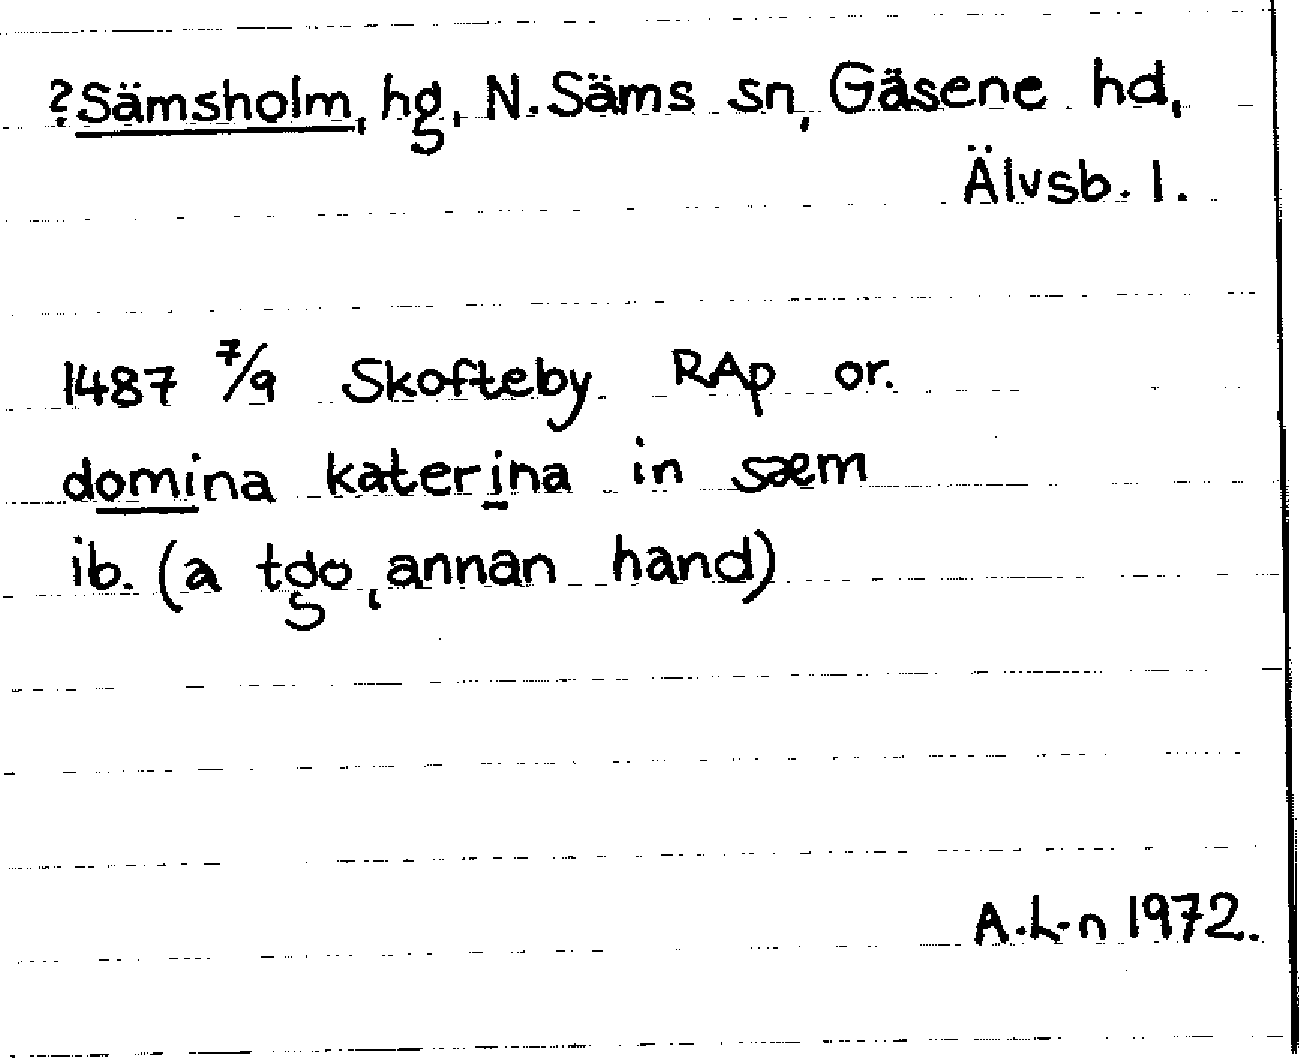 ?Sämsholm, hg, N. Säms sn, Gäsene hd,
Älvsb. l.
1487 7/9 Skofteby RAp or.
domina katerina in sæm
ib. (a tgo, annan hand)
A.L-n 1972.